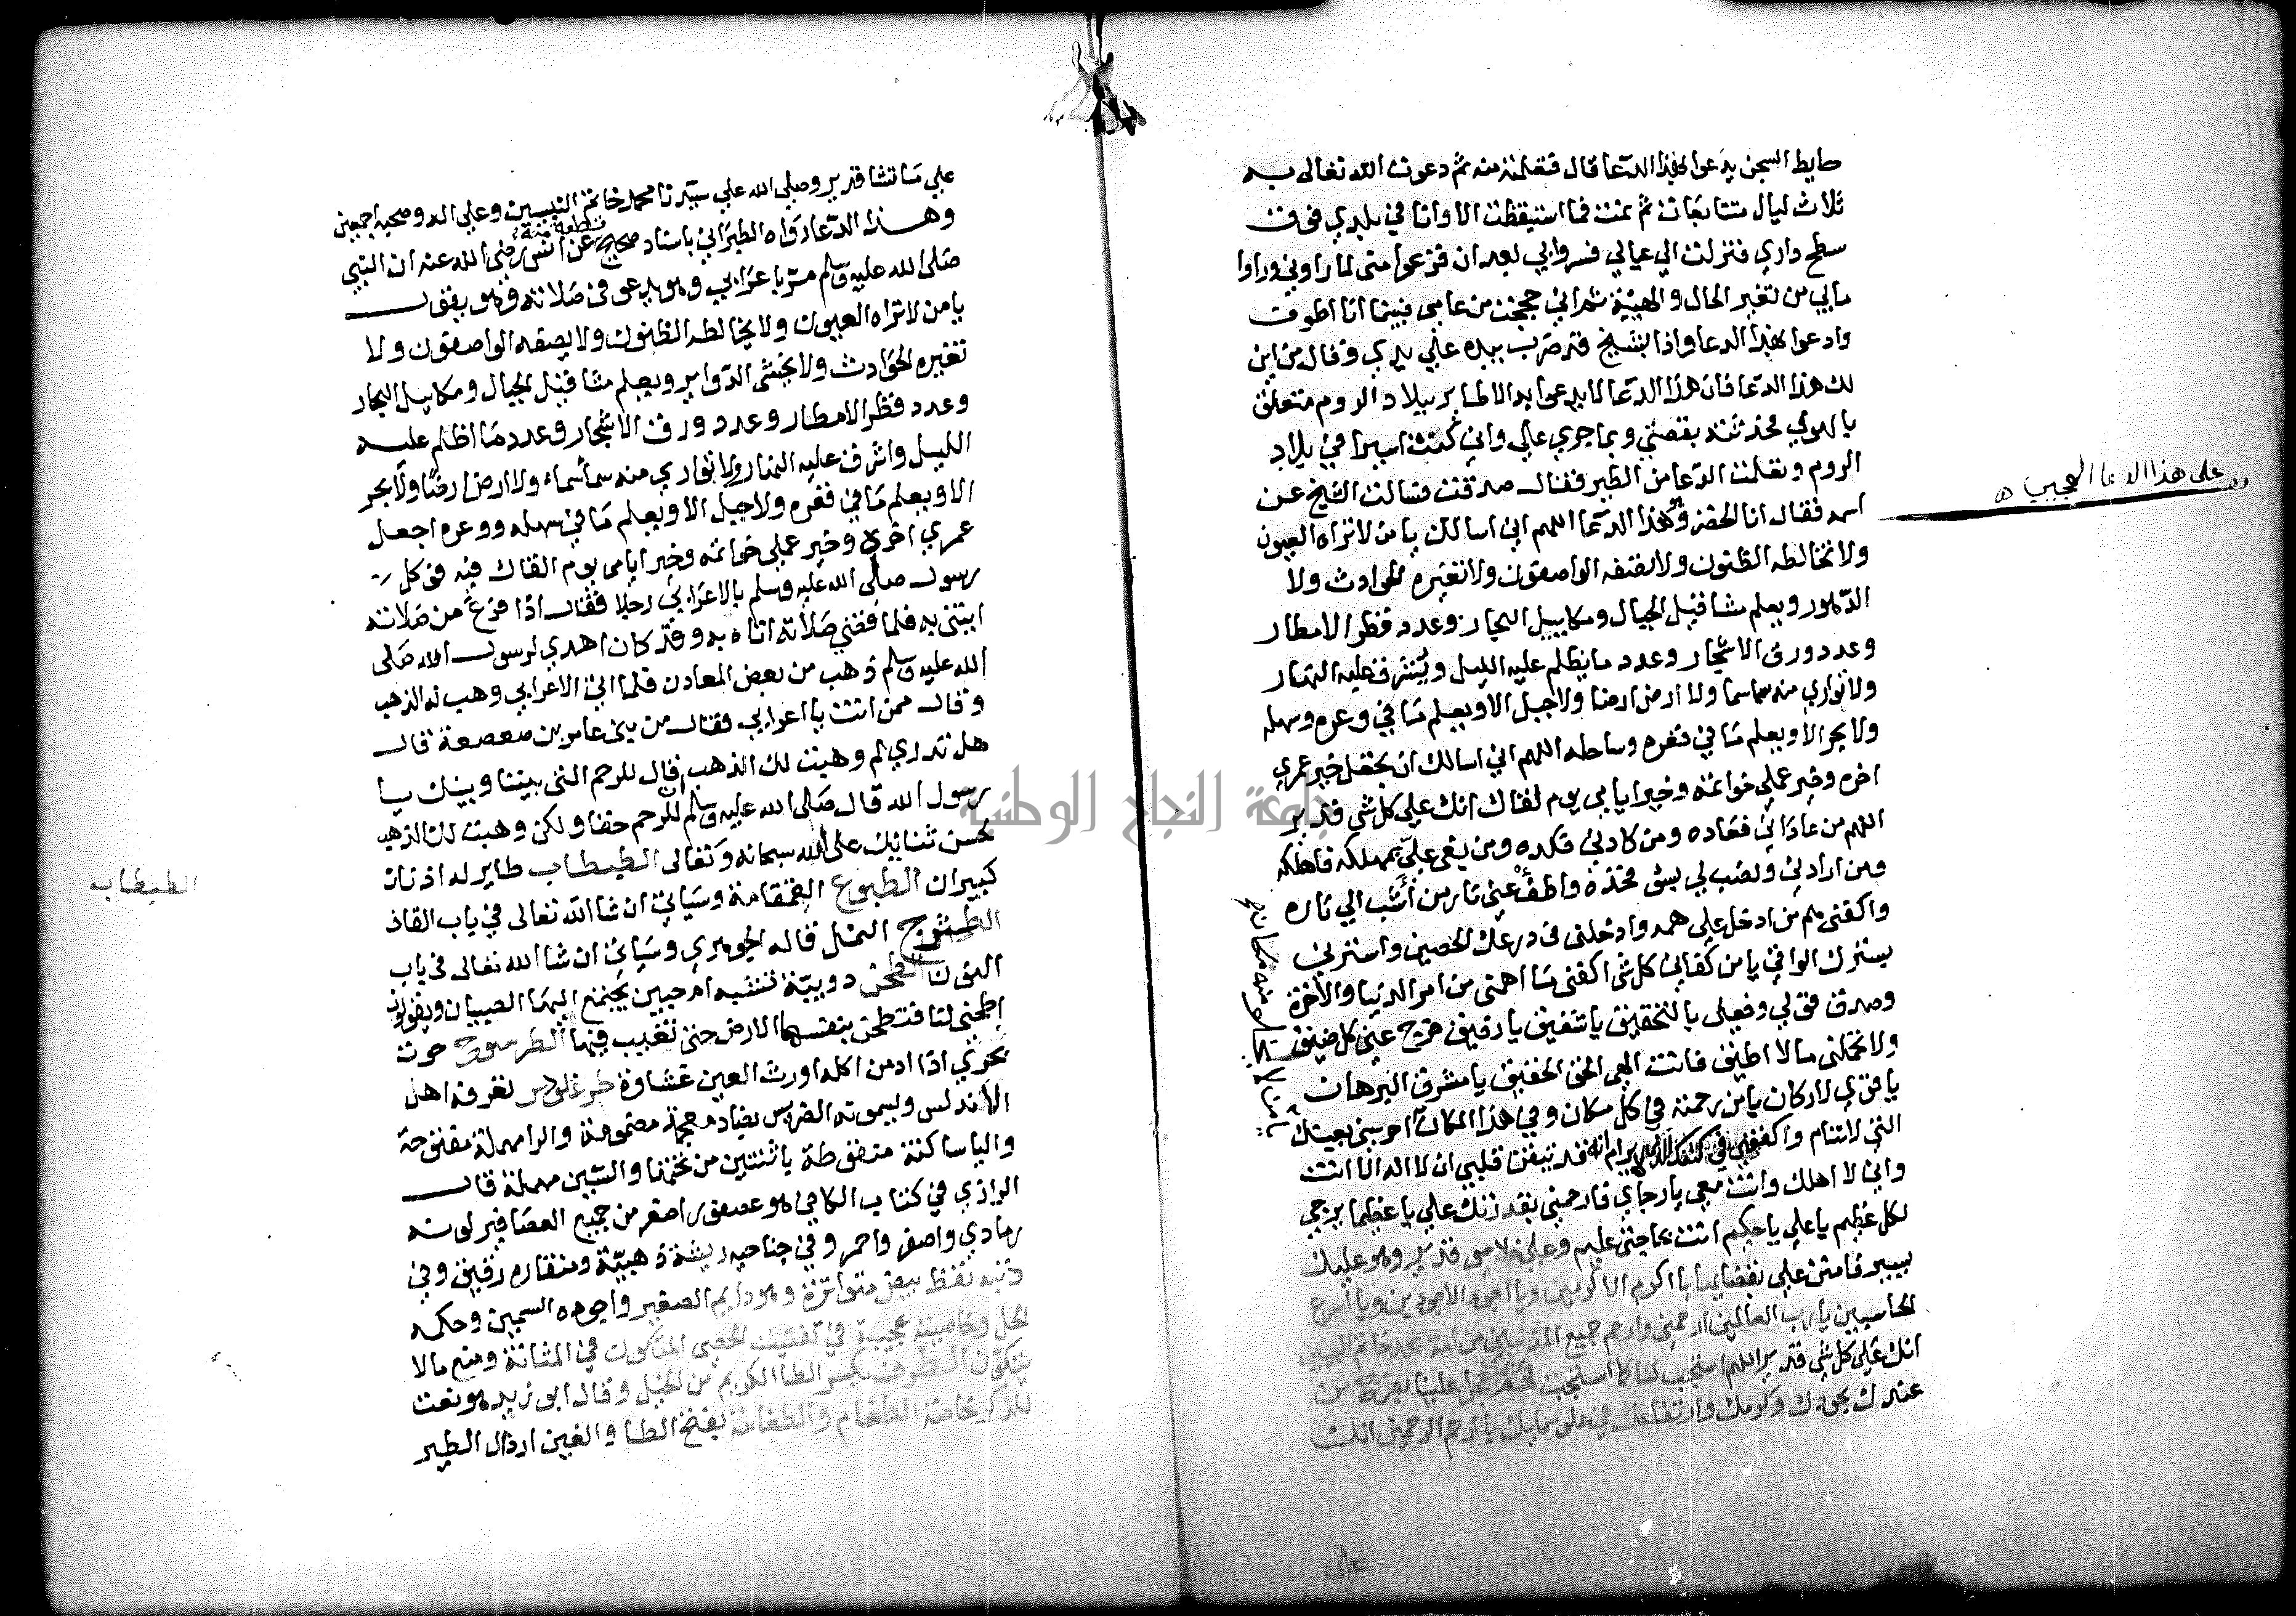 حايط السجن يدعوا بهذا الدعا قال فتعلمته منه ثم دعوت الله تعالى به
ثلاث ليال متتابعات ثم نمت فما استيقظت الا وانا في بلدي فوق
سطح داري فنزلت الي عيالي فسروا بي بعد ان فزعوا مني لما راوني وراوا
ما بي من تغير الحال والهيئة ثم اني حججت من عامي فبينما انا اطوف
وادعوا بهذا الدعا واذا بشيخ قد ضرب بيده علي يدي وقال من اين
لك هذا الدعا فان هذا الدعا لا يدعوا به الا طاير ببلاد الروم متعلق
بالهوي فحدثته بقصتي وبما جري علي واني كنت اسيرا في بلاد
الروم وتعلمت الدعا من الطير فقال صدقت فسالت الشيخ عن
اسمه فقال انا الخضر وهو هذا الدعا اللهم اني اسالك يا من لا تراه العيون
ولا تخالطه الظنون ولا يصفه الواصفون ولا تغيره الحوادث ولا
الدهور ويعلم مثاقيل الجبال ومكاييل البحار وعدد قطر الامطار
وعدد ورق الاشجار وعدد ما يظلم عليه الليل ويشرق عليه النهار
ولا تواري منه سما سما ولا ارض ارضا ولا جبل الا ويعلم ما في وعره وسهله
ولا بحر الا ويعلم ما في قعره وساحله اللهم اني اسالك ان تجعل خير عمري
اخره وخير عملي خواتمه وخير ايامي يوم لقاك انك علي كل شي قدير
اللهم من عاداني فعاده ومن كادني فكده ومن بغي علي بمهلكة فاهلكه
ومن ارادني ونصب لي بسوء فخذه واطفأ عني نار من اشب الي ناره
واكفني هم من ادخل علي همه وادخلني في درعك الحصين واسترني
بسترك الوافي يا من كفاني كل شي اكفني ما اهمني من امر الدنيا والاخرة
وصدق قولي وفعلي بالتحقيق يا شفيق يا رفيق فرج عني كل ضيق
ولا تحملني ما لا اطيق فانت الهي الحق الحقيق يا مشرق البرهان
يا قوي الاركان يا من رحمته في كل مكان وفي هذا المكان احرسني بعينك
التي لا تنام واكنفني في كنفك الذي لا يرام انه قد تيقن قلبي ان لا اله الا انت
واني لا اهلك وانت معي يا رجاي فارحمني بقدرتك علي يا عظيما يرجي
لكل عظيم يا علي يا حكيم انت بحاجتي عليم وعلي خلاصي قدير وهو عليك
يسير فامنن علي بقضايها يا اكرم الاكرمين ويا اجود الاجودين ويا اسرع
الحاسبين يا رب العالمين ارحمني وارحم جميع المذنبين من امة محمد خاتم النبيين
انك علي كل شي قدير اللهم استجب لنا كما استجبت لهم عجل علينا بفرج من
عندك بجودك وكرمك وارتفاعك في علو سمايك يا ارحم الراحمين انك
علي
على هذا الدعا العجيب
يا من لا
علي ما تشا قدير وصلي الله علي سيدنا محمد خاتم النبيين وعلي اله وصحبه اجمعين
وهذا الدعا رواه الطبراني باسناد صحيح قطعة منه عن انس رضي الله عنه ان النبي
صلى الله عليه وسلم مر باعرابي وهو يدعو في صلاته وهو يقول
يا من لا تراه العيون ولا تخالطه الظنون ولا يصفه الواصفون ولا
تغيره الحوادث ولا يخشى الدواير ويعلم مثاقيل الجبال ومكاييل البحار
وعدد قطر الامطار وعدد ورق الاشجار وعدد ما اظلم عليه
الليل واشرق عليه النهار ولا تواري منه سما سماء ولا ارض ارضا ولا بحر
الا ويعلم ما في قعره ولا جبل الا ويعلم ما في سهله ووعره اجعل
عمري اخره وخير عملي خواتمه وخير ايامي يوم القاك فيه فوكل
رسول صلى الله عليه وسلم بالاعرابي رجلا فقال اذا فرغ من صلاته
ايتني به فلما قضي صلاته اتاه به وقد كان اهدي لرسول الله صلى
الله عليه وسلم ذهب من بعض المعادن فلما اتي الاعرابي وهب له الذهب
وقال ممن انت يا اعرابي فقال من بني عامر بن صعصعة قال
هل تدري لم وهبت لك الذهب قال للرحم التي بيننا وبينك يا
رسول الله قال صلى الله عليه وسلم ان للرحم حقا ولكن وهبت لك الذهب
لحسن ثنايك على الله سبحانه وتعالى الطيطاب طاير له اذنان
كبيران الطبوع القمقامة وسياتي ان شا الله تعالى في باب القاف
الطثرج النمل قاله الجوهري وسياتي ان شا الله تعالى في باب
النون الطحن دويبة تشبه ام حبين يجتمع اليها الصبيان ويقولون
اطحني لنا فتطحن بنفسها الارض حتى تغيب فيها الطرسوح حوت
بحري اذا ادمن اكله اورث العين غشاوة طرغلودس تعرفه اهل
الاندلس ويسمونه الضريس بضاد معجمة مضمومة والرا مهملة مفتوحة
واليا ساكنة منقوطة باثنتين من تحتها والسين مهملة قال
الرازي في كتاب الكافي هو عصفور اصغر من جميع العصافير لونه
رمادي واصفر واحمر وفي جناحيه ريشة ذهبية ومنقاره رقيق وفي
ذنبه نقط بيض متواترة وهو دايم الصفير واجوده السمين وحكمه
الحل وخاصيته عجيبة في تفتيت الحصى المتكون في المثانة ومنع ما لا
يتكون الطرف بكسر الطا الكريم من الخيل وقال ابو زيد هو نعت
للذكر خاصة الطغام والطغامة بفتح الطا والغين ارذال الطير
الطيطاب
جامعة النجاح الوطنية